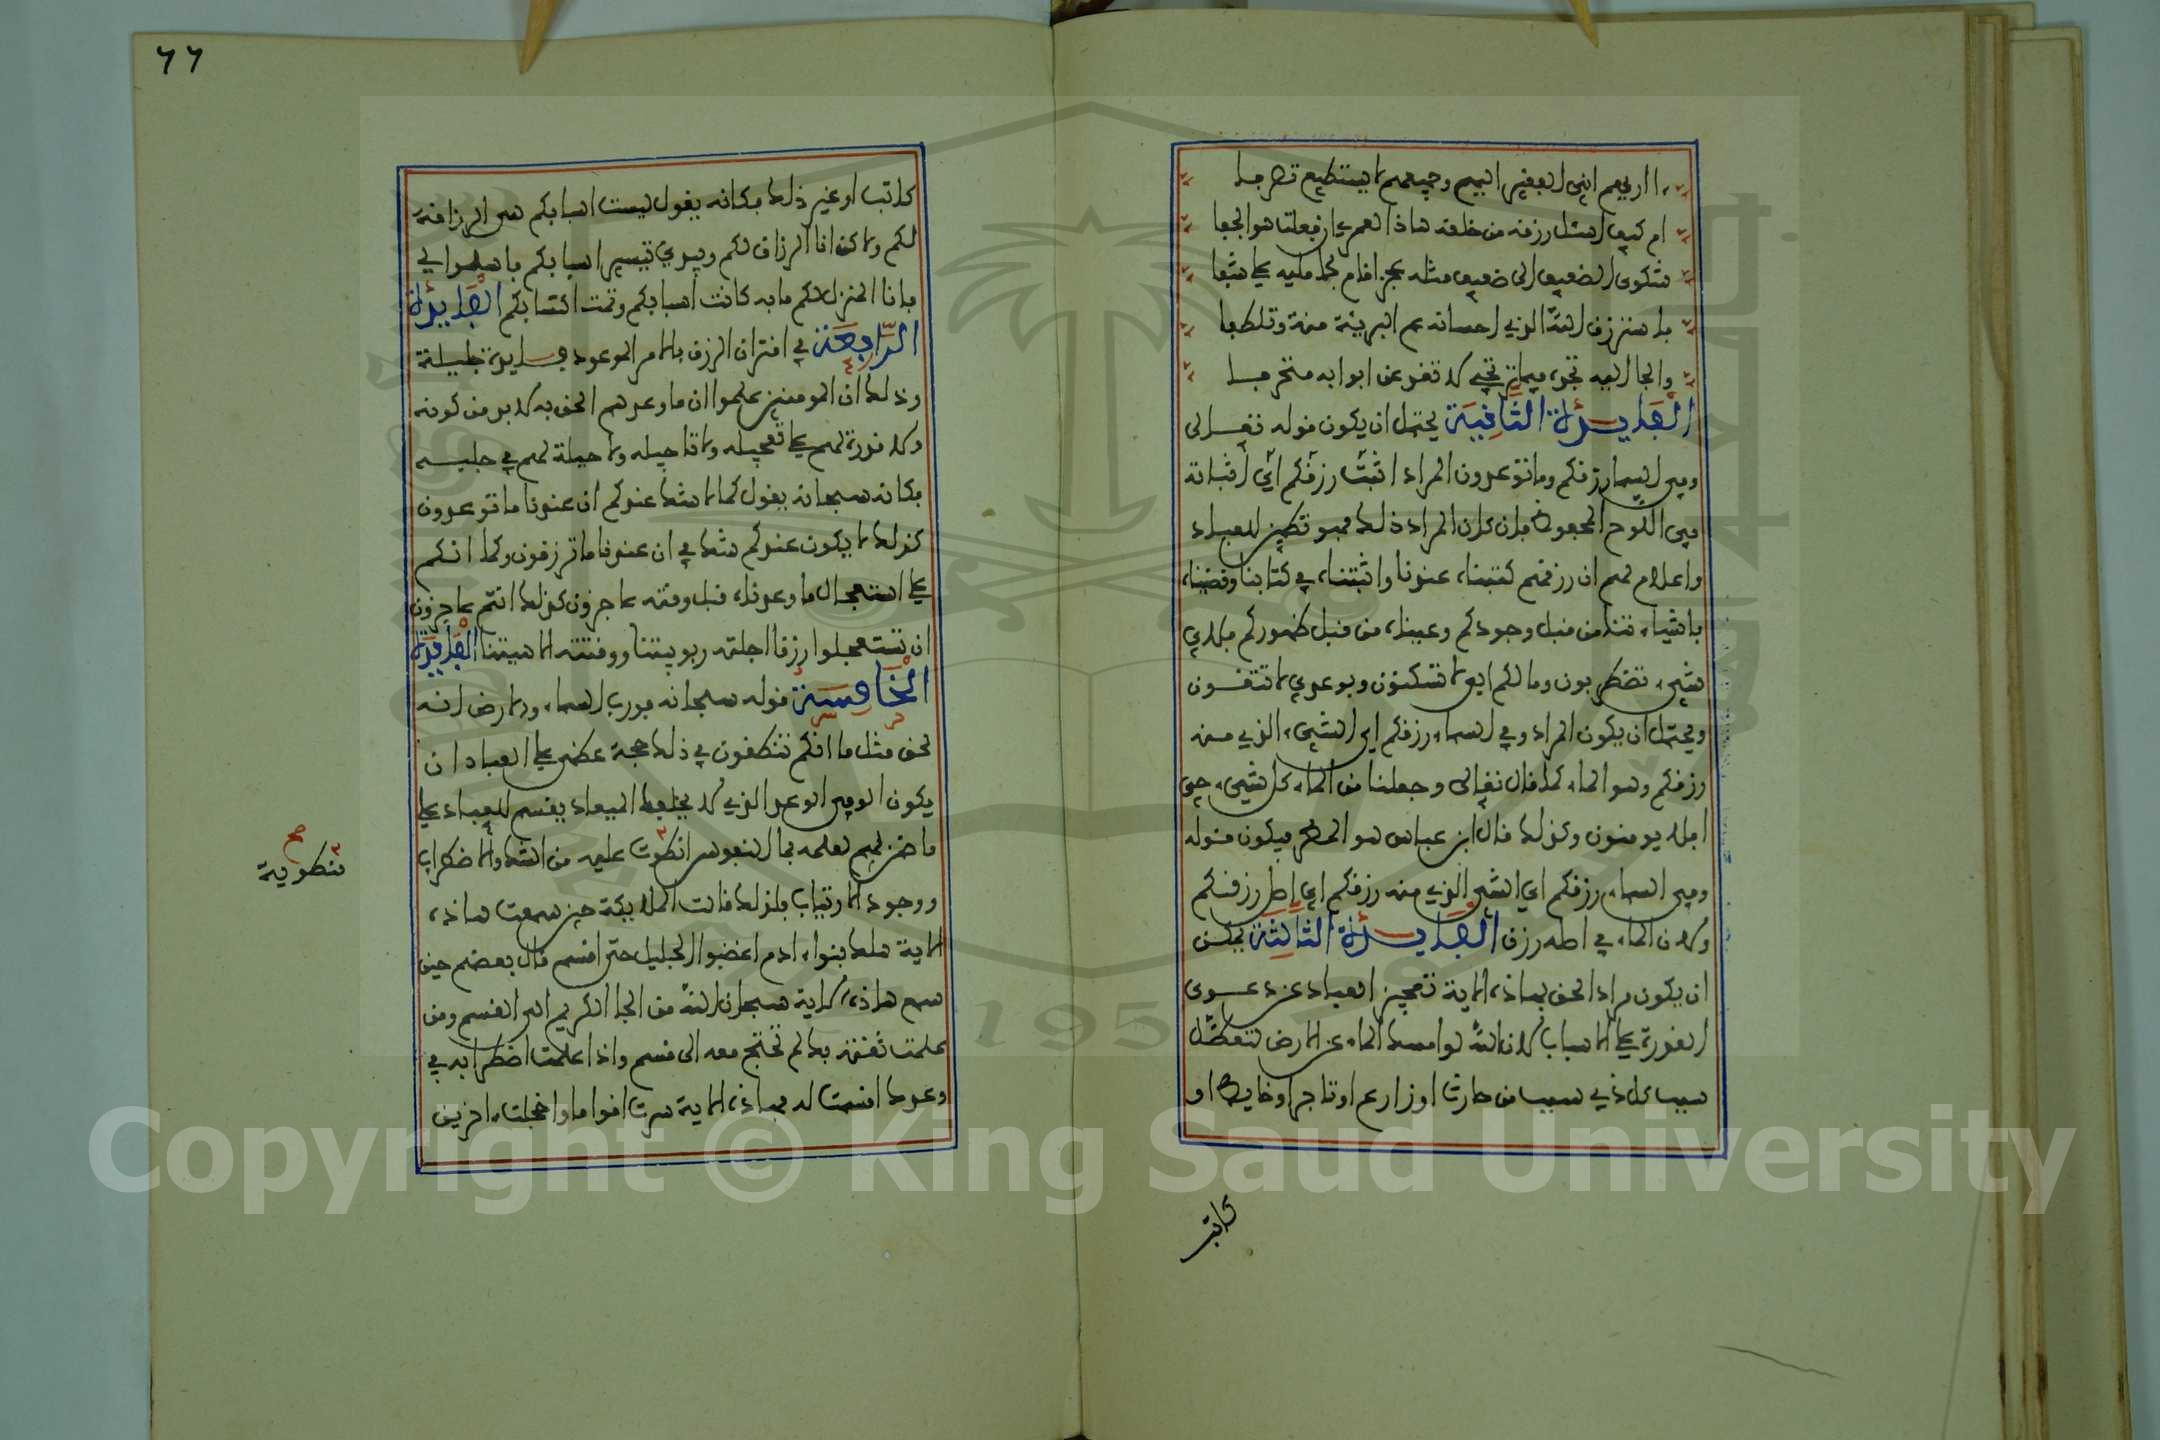 أأريهم أني الفقير إليهم وجميعهم لا يستطيع تصرفا
أم كيف أسئل رزقه من خلقه هاذا لعمري إن فعلت هو الجفا
شكوى الضعيف إلى ضعيف مثله عجز أقام بحامليه على شفا
فاسترزق الله الذي إحسانه عم البرية منة وتلطفا
والجأ إليه تجده فيما ترتجي لا تعد عن أبوابه متحرفا
الفايدة الثانية يحتمل أن يكون قوله تعالى
وفي السماء رزقكم وما توعدون المراد اثبت رزقكم أي أثباته
في اللوح المحفوظ فإن كان المراد ذلك فهو تطمين للعباد
وإعلام لهم أن رزقهم كتبناه عندنا وأثبتناه في كتابنا وقضيناه
بآشياءنا من قبل وجودكم وعيناه من قبل ظهوركم فلأي
شيء تضطربون وما لكم إلي لا تسكنون وبوعدي لا تثقون
ويحتمل أن يكون المراد وفي السماء رزقكم أي الشيء الذي منه
رزقكم وهو الماء كما قال تعالى وجعلنا من الماء كل شيء حي
أفلا يومنون وكذلك قال ابن عباس هو المطر فيكون قوله
وفي السماء رزقكم أي الشيء الذي منه رزقكم أي أصل رزقكم
ولأن الماء في أصله رزق الفايدة الثالثة يمكن
أن يكون مراد الحق بهاذه الآية تعجيز العباد عن دعوى
القدرة على الأسباب لأن الله لو أمسك الماء عن الأرض لتعطل
سبب كل ذي سبب من حارث أو زارع أو تاجر أو خايط أو
كاتب
٦٦
كاتب أو غير ذلك فكأنه يقول ليست أسبابكم هي الرازقة
لكم ولاكن أنا الرازق لكم وبيدي تيسير أسبابكم
فأنا المنزل لكم ما به كانت أسبابكم وتمت اكتسابكم الفايدة
الرابعة في اقتران الرزق بالأمر الموعود فايدة جليلة
وذلك أن المومنين علموا أن ما وعدهم الحق به لا بد من كونه
ولا قدرة لهم على تعجيله ولا تأجيله ولا حيلة لهم في جلبه
فكأنه سبحانه يقول كما لا شك عندكم أن عندنا ما توعدون
كذلك لا يكون عندكم شك في أن عندنا ما ترزقون وكما أنكم
على استعجال ما وعدناه قبل وقته عاجزون كذلك أنتم عاجزون
أن تستعجلوا رزقا أجلته ربوبيتنا ووقتته الاهيتنا الفايدة
الخامسة قوله سبحانه فورب السماء والأرض إنه
لحق مثل ما أنكم تنطقون في ذلك حجة عظمى على العباد أن
يكون الوفي الوعد الذي لا يخلف الميعاد يقسم للعباد على
ما ضمن لهم لعلمه بما النفوس انطوت عليه من الشك والاضطراب
منطوية صح
ووجود الارتياب فلذلك قالت الملايكة حين سمعت هاذه
الآية هلك بنوا ءادم أغضبوا الجليل حتى أقسم وقال بعضهم حين
سمع هاذه الآية سبحان الله من الجأ الكريم إلى القسم ومن
علمت ثقته بك لم تحتج معه إلى قسم وإذا علمت اضطرابه في
وعدك أقسمت له فهاذه الآية سرت أقواما وأخجلت ءاخرين